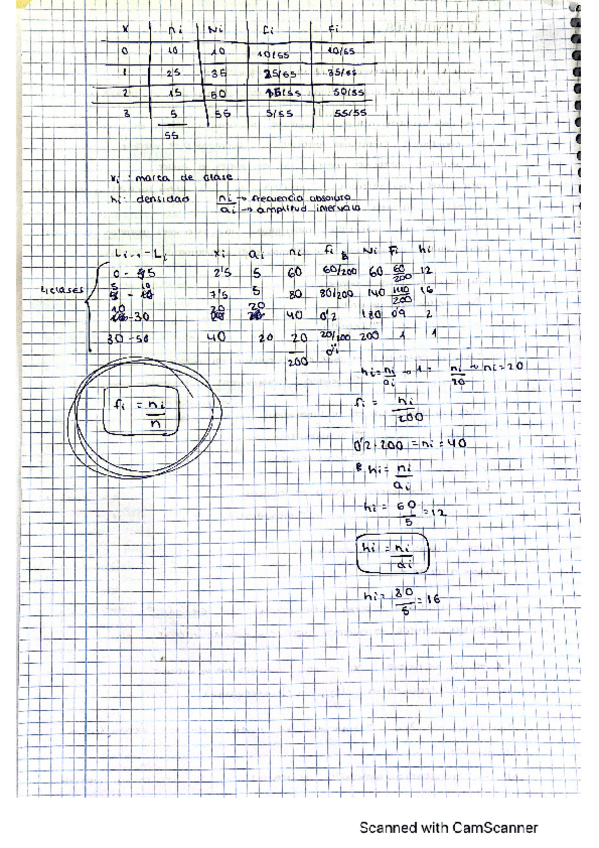 X ni Ni fi Fi
0 10 10 10/55 10/55
1 25 35 25/55 35/55
2 15 50 15/55 50/55
3 5 55 5/55 55/55
55
xi : marca de clase
hi: densidad ni → frecuencia absoluta
ai → amplitud intervalo
Li-1 - Li xi ai ni fi Ni Fi hi
0 - 5 2'5 5 60 60/200 60 60/200 12
4 clases
5 - 10 7'5 5 80 80/200 140 140/200 16
10 - 30 20 20 40 0'2 180 0'9 2
30 - 50 40 20 20 20/200 200 1 1
200 0'1
hi = ni/ai → 1 = ni/20 → ni = 20
fi = ni/n
fi = ni/200
0'2 · 200 = ni = 40
hi = ni/ai
hi = 60/5 = 12
hi = ni/ai
hi = 80/5 = 16
Scanned with CamScanner